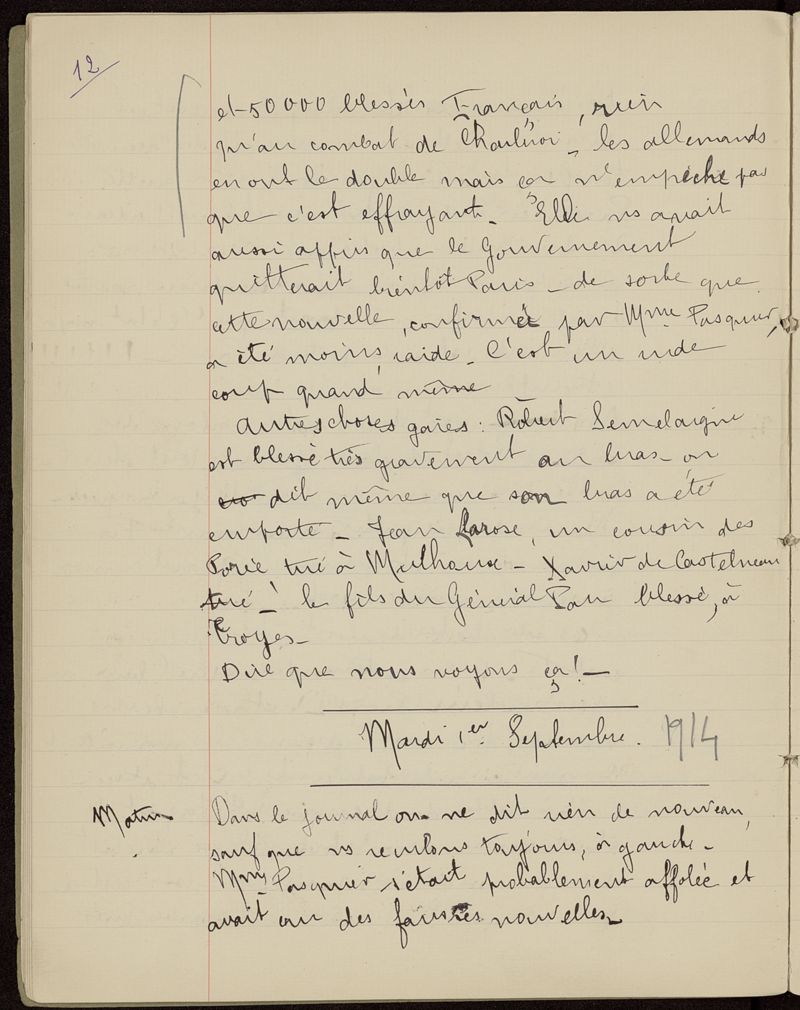 12
et 50000 blessés Français, rien
qu'au combat de Charleroi _ les allemands
en ont le double mais ça n'empêche pas
que c'est effrayant _ Elle ns avait
aussi appris que le Gouvernement
quitterait bientôt Paris _ de sorte que
cette nouvelle, confirmée par Mme Pasquier,
a été moins raide _ C'est un rude
coup quand même
Autres choses gaies : Robert Semelaigne
est blessé très gravement au bras _ on
dit même que son bras a été
emporté _ Jean Larose, un cousin des
Porée tué à Mulhouse _ Xavier de Castelneau
tué _ ! le fils du Général Pau blessé, à
Troyes _
Dire que nous voyons ça ! _
Mardi 1er Septembre. 1914
Matin
Dans le journal on ne dit rien de nouveau,
sauf que ns reculons toujours, à gauche _
Mme Pasquier s'était probablement affolée et
avait eu des fausses nouvelles _